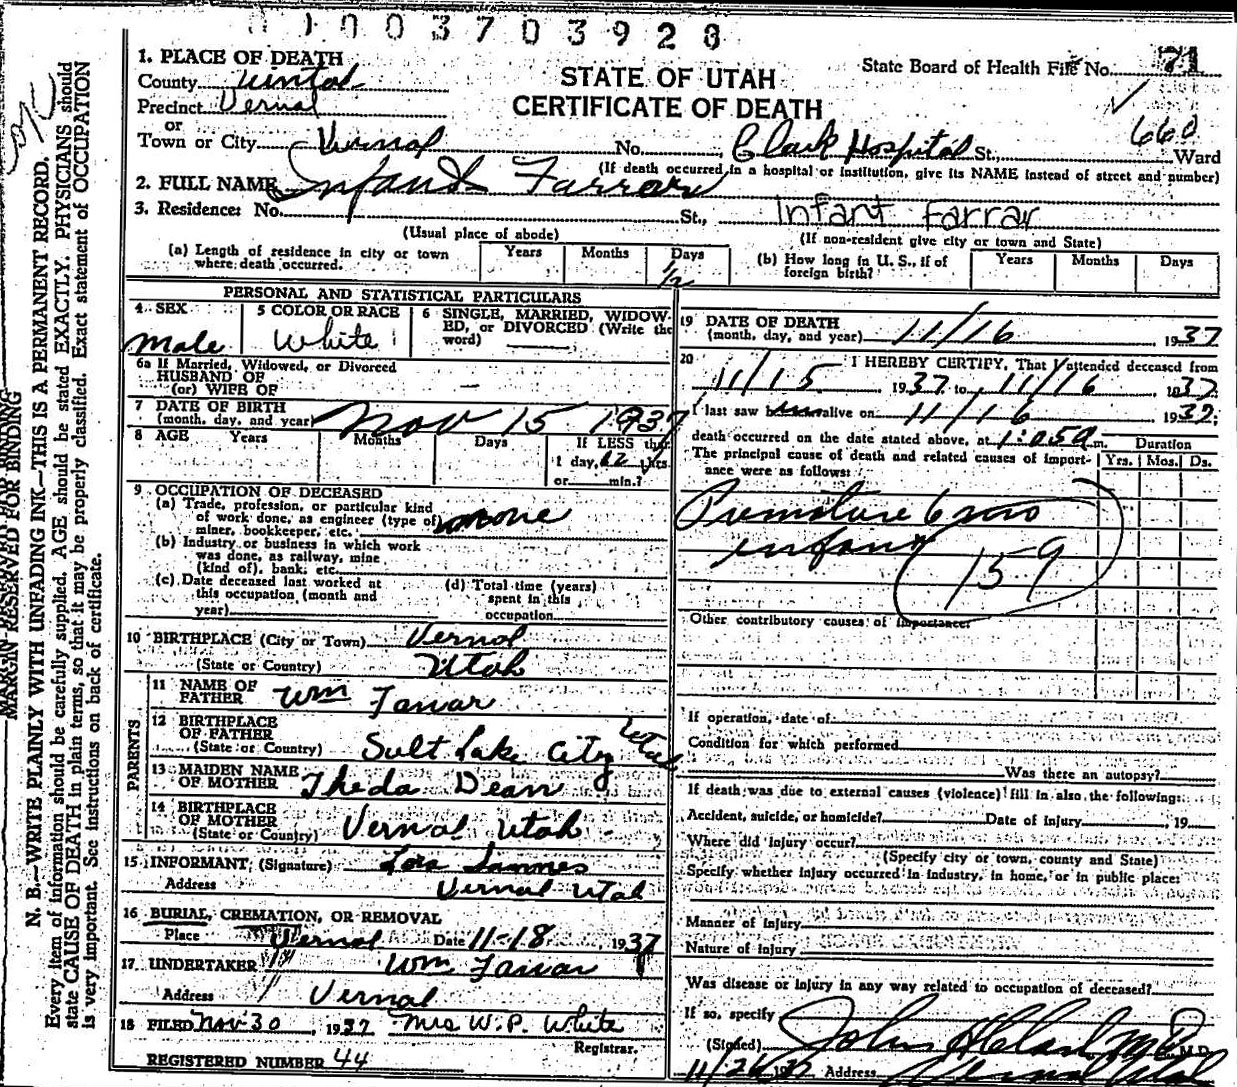 003703928
1. PLACE OF DEATH
County Uintah
Precinct Vernal
or
Town or City Vernal No. Clark Hospital St., Ward
STATE OF UTAH
CERTIFICATE OF DEATH
State Board of Health File No. 71
660
(If death occurred in a hospital or institution, give its NAME instead of street and number)
2. FULL NAME Infant Farrar
3. Residence: No. St., Infant Farrar
(Usual place of abode) (If non-resident give city or town and State)
(a) Length of residence in city or town where death occurred. Years Months Days 1/2
(b) How long in U. S., if of foreign birth? Years Months Days
PERSONAL AND STATISTICAL PARTICULARS
4 SEX Male
5 COLOR OR RACE White
6 SINGLE, MARRIED, WIDOWED, or DIVORCED (Write the word)
6a If Married, Widowed, or Divorced
HUSBAND OF
(or) WIFE OF —
7 DATE OF BIRTH
(month, day, and year) Nov 15 1937
8 AGE Years Months Days If LESS than
1 day, 12 hrs.
or min.?
9 OCCUPATION OF DECEASED
(a) Trade, profession, or particular kind
of work done, as engineer (type of)
miner, bookkeeper, etc. none
(b) Industry or business in which work
was done, as railway, mine
(kind of), bank, etc.
(c) Date deceased last worked at
this occupation (month and
year)
(d) Total time (years)
spent in this
occupation
10 BIRTHPLACE (City or Town) Vernal
(State or Country) Utah
PARENTS
11 NAME OF FATHER Wm Farrar
12 BIRTHPLACE OF FATHER
(State or Country) Salt Lake City Utah
13 MAIDEN NAME OF MOTHER Theda Dean
14 BIRTHPLACE OF MOTHER
(State or Country) Vernal Utah
15 INFORMANT (Signature) Lois
Address Vernal Utah
16 BURIAL, CREMATION, OR REMOVAL
Place Vernal Date 11-18 1937
17 UNDERTAKER Wm Farrar
Address Vernal
18 FILED Nov 30, 1937 Mrs W. P. White
Registrar.
REGISTERED NUMBER 44
19 DATE OF DEATH
(month, day, and year) 11/16 1937
20 I HEREBY CERTIFY, That I attended deceased from
11/15 1937 to 11/16 1937
I last saw him alive on 11/16 1937;
death occurred on the date stated above, at 1:05a m.
Duration
The principal cause of death and related causes of importance were as follows: Yrs. Mos. Ds.
Premature 6 mo
infant
159
Other contributory causes of importance:
If operation, date of
Condition for which performed
Was there an autopsy?
If death was due to external causes (violence) fill in also the following:
Accident, suicide, or homicide? Date of injury , 19
Where did injury occur?
(Specify city or town, county and State)
Specify whether injury occurred in industry, in home, or in public place:
Manner of injury
Nature of injury
Was disease or injury in any way related to occupation of deceased?
If so, specify
(Signed) John H Clark M D M. D.
11/26 1937 Address Vernal Utah
MARGIN RESERVED FOR BINDING
N. B.—WRITE PLAINLY WITH UNFADING INK—THIS IS A PERMANENT RECORD.
Every item of information should be carefully supplied. AGE should be stated EXACTLY. PHYSICIANS should
state CAUSE OF DEATH in plain terms, so that it may be properly classified. Exact statement of OCCUPATION
is very important. See instructions on back of certificate.